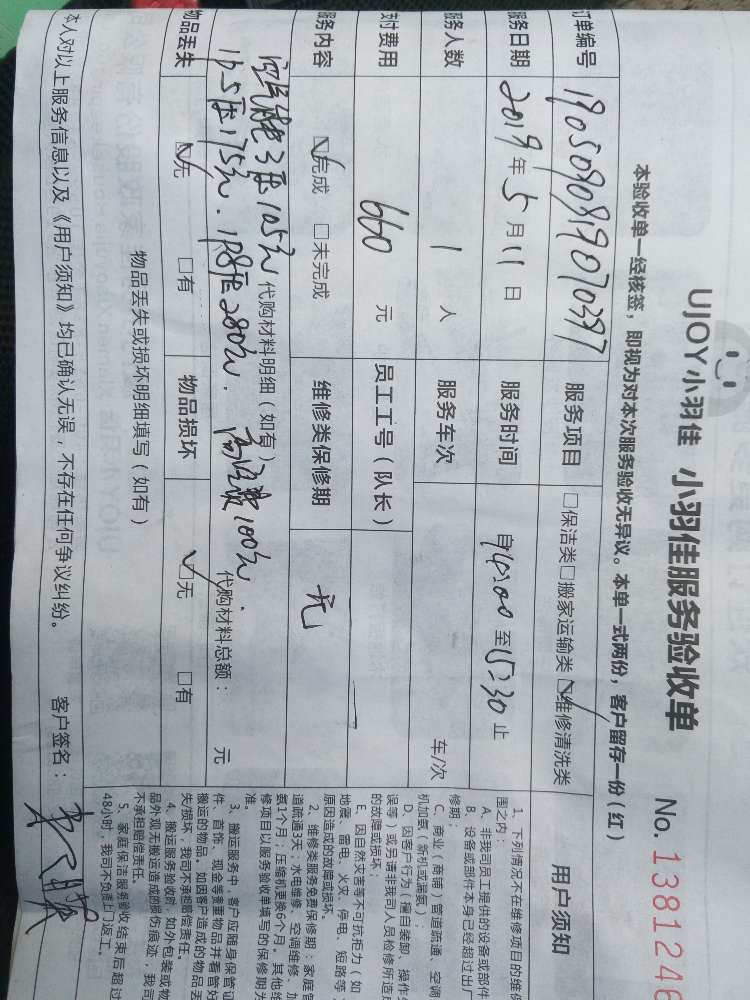 UJOY小羽佳 小羽佳服务验收单
No. 1381246
本验收单一经核签，即视为对本次服务验收无异议。本单一式两份，客户留存一份（红）
订单编号 服务项目 □保洁类□搬家运输类☑维修清洗类
服务日期 2019年5月11日 服务时间 自14:00至15:30止
服务人数 1人 服务车次 车/次
支付费用 660元 员工工号（队长）
服务内容 ☑完成 □未完成 维修类保修期 无
代购材料明细（如有）
3 105元
1.5匹175元. 280元. 100元.
代购材料总额： 元
物品丢失 ☑无 □有 物品损坏 ☑无 □有
物品丢失或损坏明细填写（如有）
本人对以上服务信息以及《用户须知》均已确认无误，不存在任何争议纠纷。 客户签名：
用户须知
1、下列情况不在维修项目的维保
围之内：
A、非我司员工提供的设备或部件
B、设备或部件本身已经超过出厂
修期；
C、商业（商铺）管道疏通、空调
机加氨（新机或漏氨）；
D、因客户行为（擅自装卸、操作失
误等）或另请非我司人员检修所造成
的故障或损坏；
E、因自然灾害等不可抗拒力（如
地震、雷电、火灾、停电、短路等
原因造成的故障或损坏。
2、维修类服务免费保修期：家庭管
道疏通3天；水电维修、空调维修、加
氨1个月；压缩机更换6个月。其他维
修项目以服务验收单填写的保修期为
准。
3、搬运服务中，客户应随身保管证
件、首饰、现金等贵重物品并看管好
搬运的物品。如因客户造成的物品丢
失/损坏，我司不承担赔偿责任。
4、搬运服务验收时，如外包装或物
品外观无搬运造成的损伤痕迹，我司
不承担赔偿责任。
5、家庭保洁服务验收结束后超过
48小时，我司不负责上门返工。